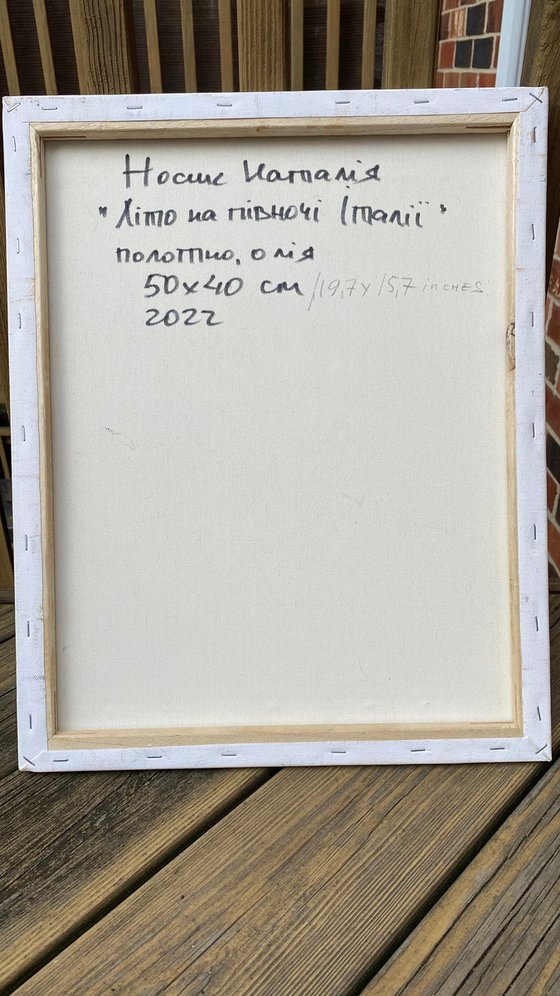 Носик Наталія
"Літо на півночі Італії"
полотно, олія
50x40 см /19,7x15,7 inches
2022